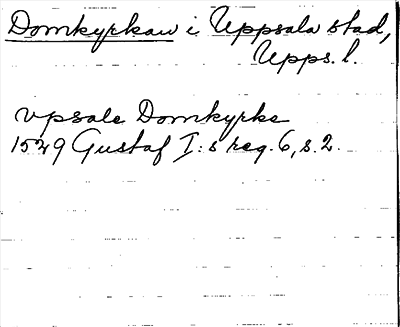 Domkyrkan i Uppsala stad,
Upps. l.
vpsale Domkyrke
1529 Gustaf I:s reg. 6, s. 2.